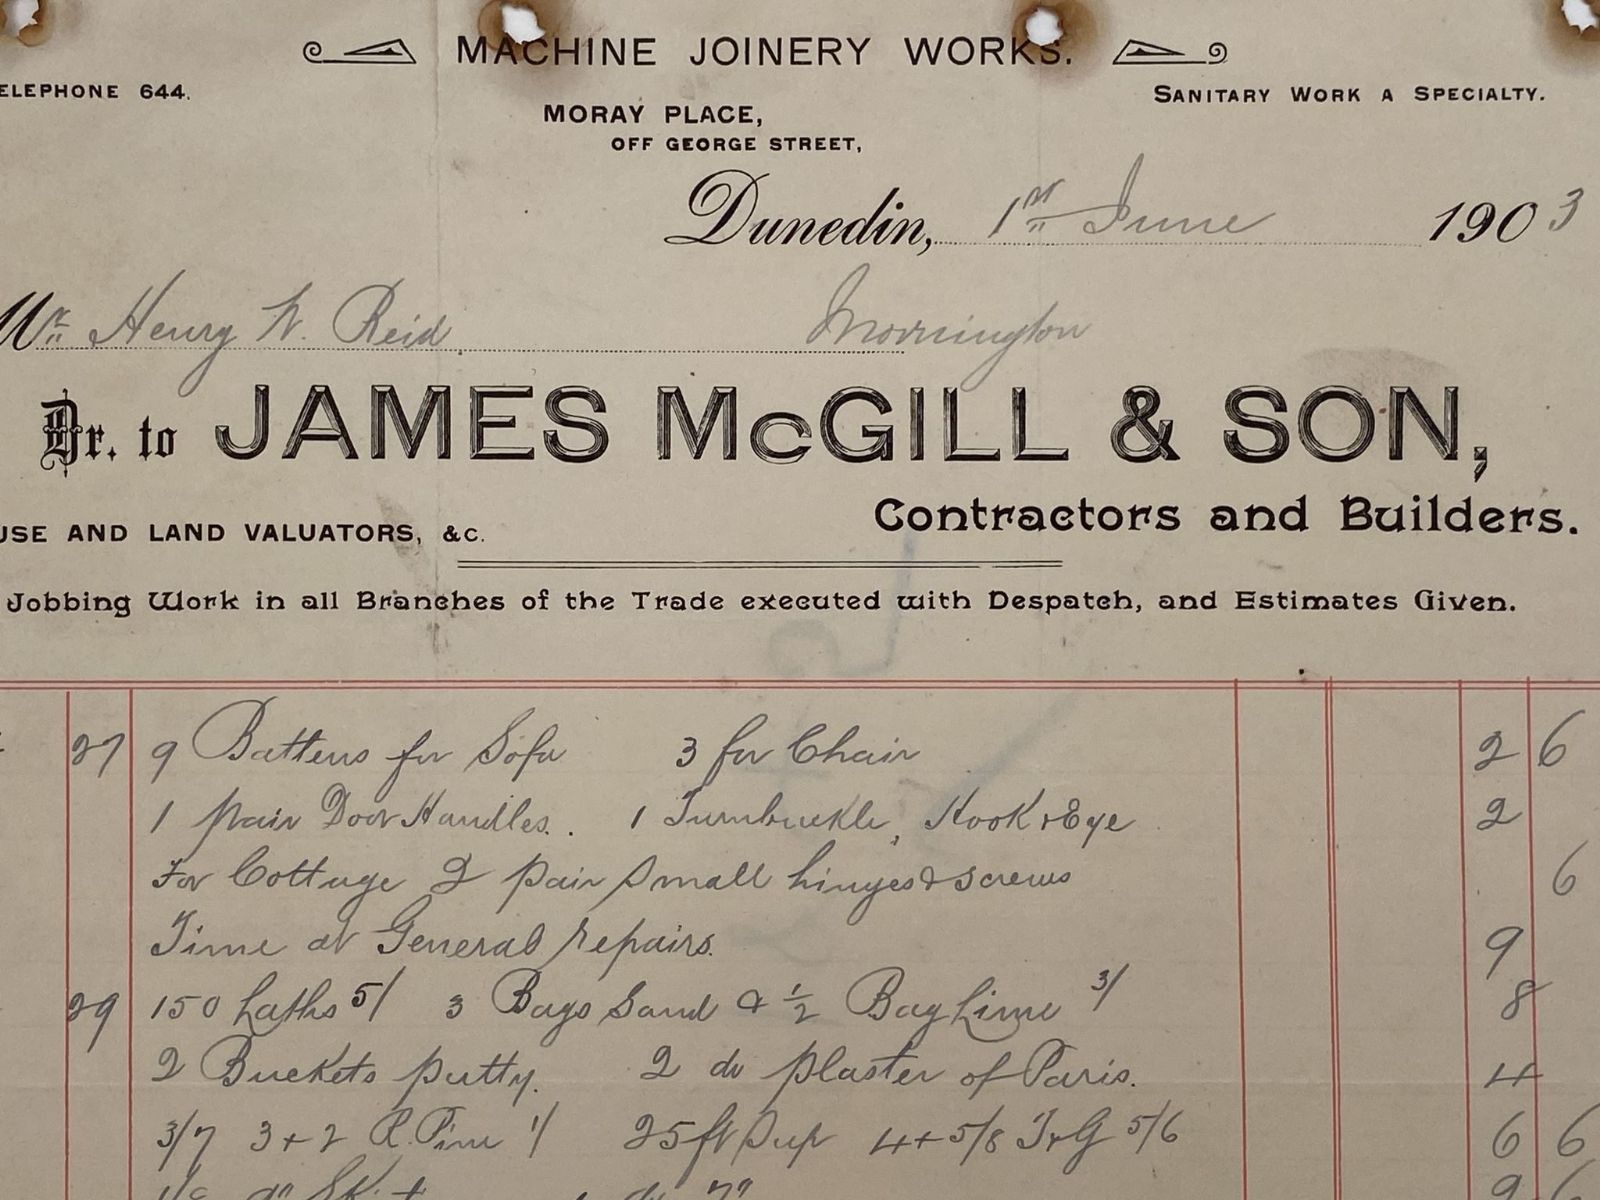 MACHINE JOINERY WORKS.
ELEPHONE 644.
SANITARY WORK A SPECIALTY.
MORAY PLACE,
OFF GEORGE STREET,
Dunedin, 1st June 1903
Mr Henry W. Reid Mornington
Dr. to JAMES McGILL & SON,
Contractors and Builders.
USE AND LAND VALUATORS, &c.
Jobbing Work in all Branches of the Trade executed with Despatch, and Estimates Given.
27 9 Battens for Sofa 3 for Chair 2 6
1 pair Door Handles. 1 Turnbuckle, Hook & Eye 2
For Cottage 2 pair small hinges & screws 6
Time at General repairs. 9
29 150 Laths 5/ 3 Bags Sand & ½ Bag Lime 3/ 8
2 Buckets putty. 2 do plaster of Paris. 4
3/7 3+2 R. Pine 1/ 25ft Sup 4+5/8 T+G 5/6 6 6